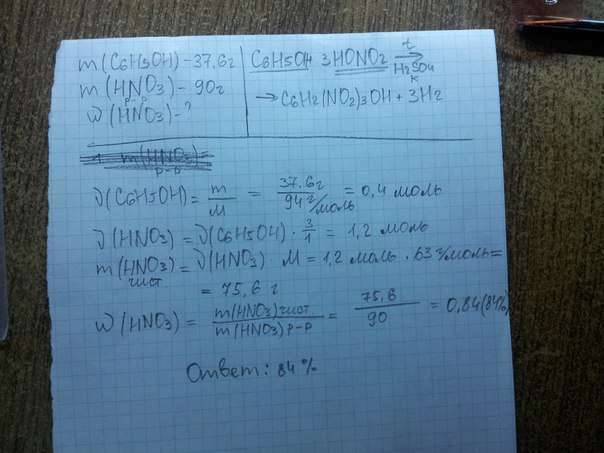 m(C6H5OH)-37.6г
m(HNO3)- 90г
р-р
W(HNO3)-?
C6H5OH 3HONO2 t→
H2SO4
к
→C6H2(NO2)3OH + 3H2
m(HNO3)=
р-р
ν(C6H5OH)= m/M = 37.6г/94г/моль = 0,4 моль
ν(HNO3)=ν(C6H5OH)·3/1 = 1,2 моль
m(HNO3)=ν(HNO3) M = 1,2 моль · 63г/моль=
чист
= 75,6 г
W(HNO3) = m(HNO3)чист/m(HNO3)р-р = 75,6/90 = 0,84(84%)
Ответ: 84 %